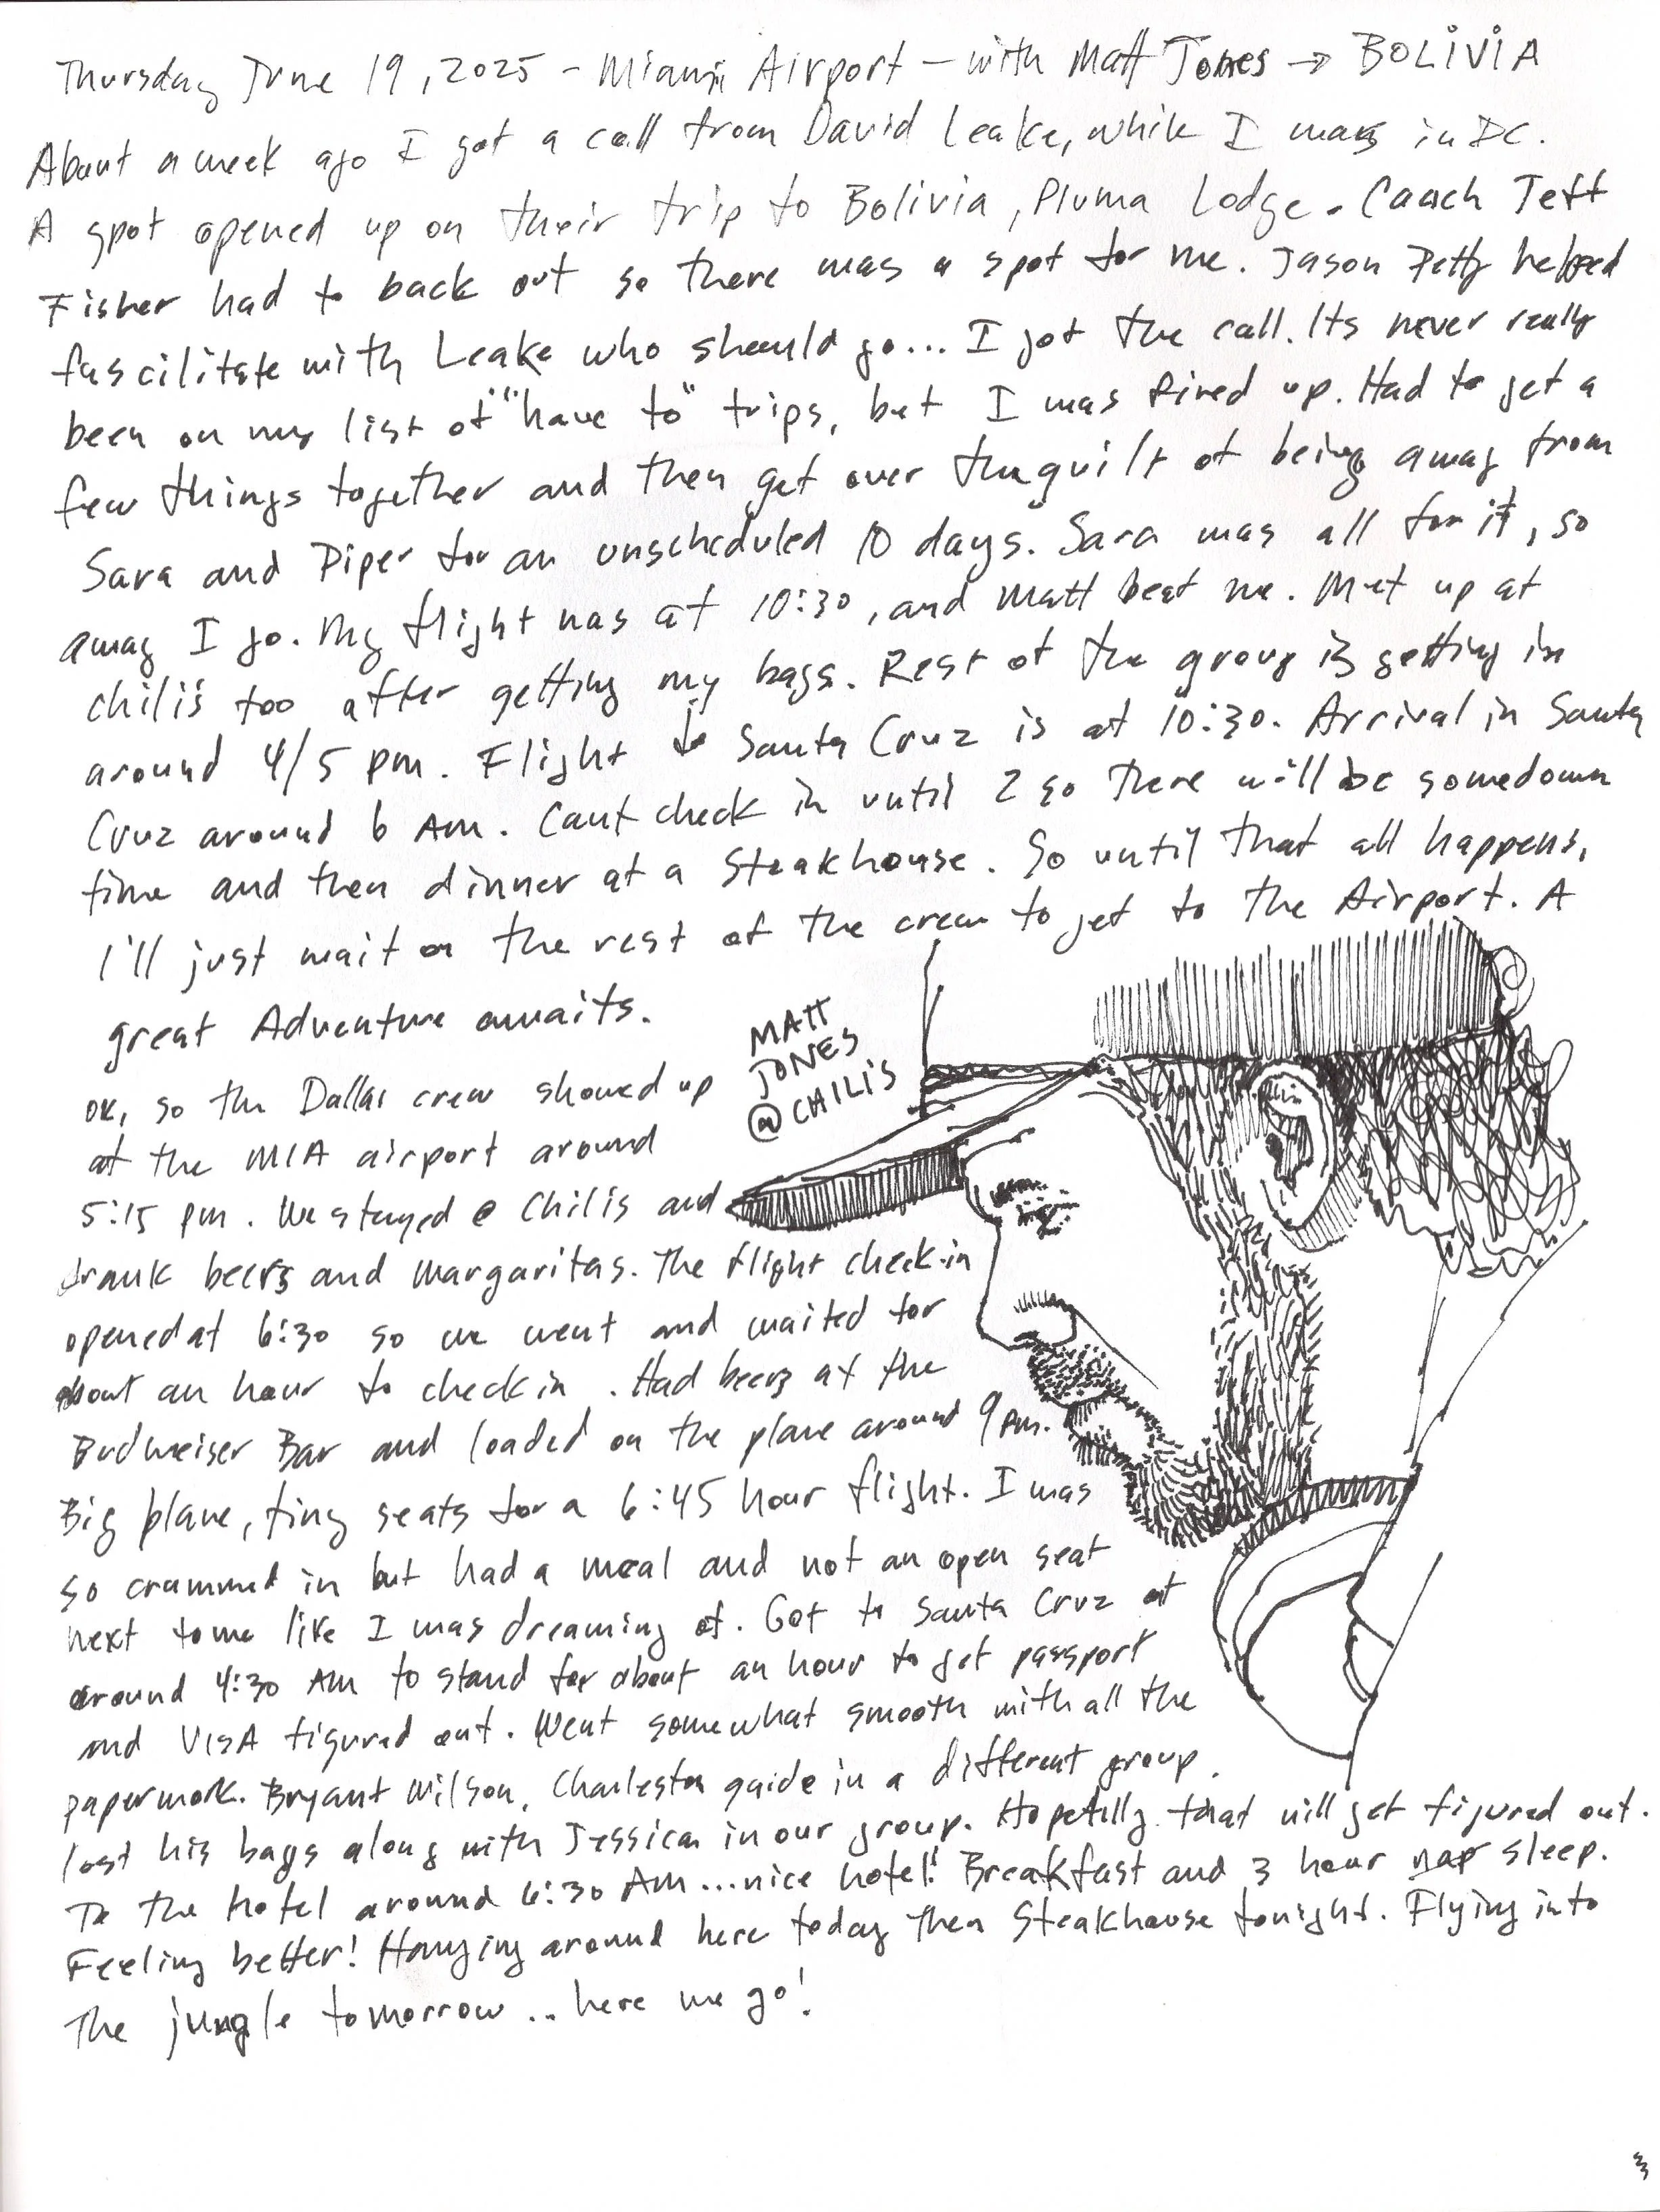 Thursday June 19, 2025 - Miami Airport - with Matt Jones → BOLIVIA
About a week ago I got a call from David Leake, while I was in DC.
A spot opened up on their trip to Bolivia, Pluma Lodge. Coach Jeff
Fisher had to back out so there was a spot for me. Jason Petty helped
fascilitate with Leake who should go... I got the call. Its never really
been on my list of "have to" trips, but I was fired up. Had to get a
few things together and then get over the guilt of being away from
Sara and Piper for an unscheduled 10 days. Sara was all for it, so
away I go. My flight was at 10:30, and Matt beat me. Met up at
chili's too after getting my bags. Rest of the group is getting in
around 4/5 pm. Flight to Santa Cruz is at 10:30. Arrival in Santa
Cruz around 6 AM. Cant check in until 2 so there will be somedown
time and then dinner at a Steakhouse. So until that all happens,
I'll just wait on the rest of the crew to get to the Airport. A
great Adventure awaits.
MATT
JONES
@ CHILI'S
OK, so the Dallas crew showed up
at the MIA airport around
5:15 pm. We stayed @ Chilis and
drank beers and margaritas. The flight check-in
opened at 6:30 so we went and waited for
about an hour to check in. Had beers at the
Budweiser Bar and loaded on the plane around 9 pm.
Big plane, tiny seats for a 6:45 hour flight. I was
so crammed in but had a meal and not an open seat
next to me like I was dreaming of. Got to Santa Cruz at
around 4:30 AM to stand for about an hour to get passport
and VISA figured out. Went somewhat smooth with all the
paperwork. Bryant Wilson, Charleston guide in a different group,
lost his bags along with Jessica in our group. Hopefully that will get figured out.
To the hotel around 6:30 AM...nice hotel! Breakfast and 3 hour nap sleep.
Feeling better! Hanging around here today then Steakhouse tonight. Flying into
The jungle tomorrow... here we go!